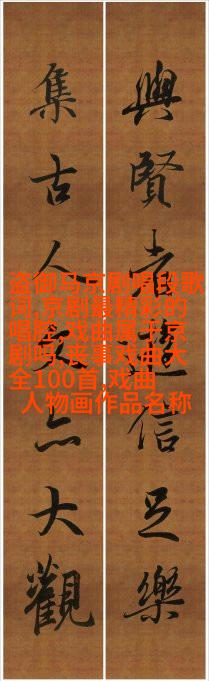 與賢者遊信足樂
集古人文亦大觀
盗御马京剧唱段歌
词,京剧最精彩的
唱腔,戏曲属于京
剧吗,丧事戏曲大
全100首,戏曲
人物画作品名称